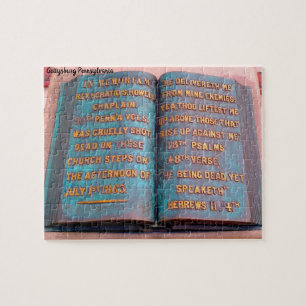 Gettysburg Pennsylvania
IN MEMORIAM
REV. HORATIO S. HOWELL
CHAPLAIN,
90TH PENN'A VOLS.
WAS CRUELLY SHOT
DEAD ON THESE
CHURCH STEPS ON
THE AFTERNOON OF
JULY 1ST 1863.
"HE DELIVERETH ME
FROM MINE ENEMIES.
YEA, THOU LIFTEST ME
UP ABOVE THOSE THAT
RISE UP AGAINST ME."
18TH PSALMS
48TH VERSE.
"HE BEING DEAD YET
SPEAKETH"
HEBREWS 11. 4TH